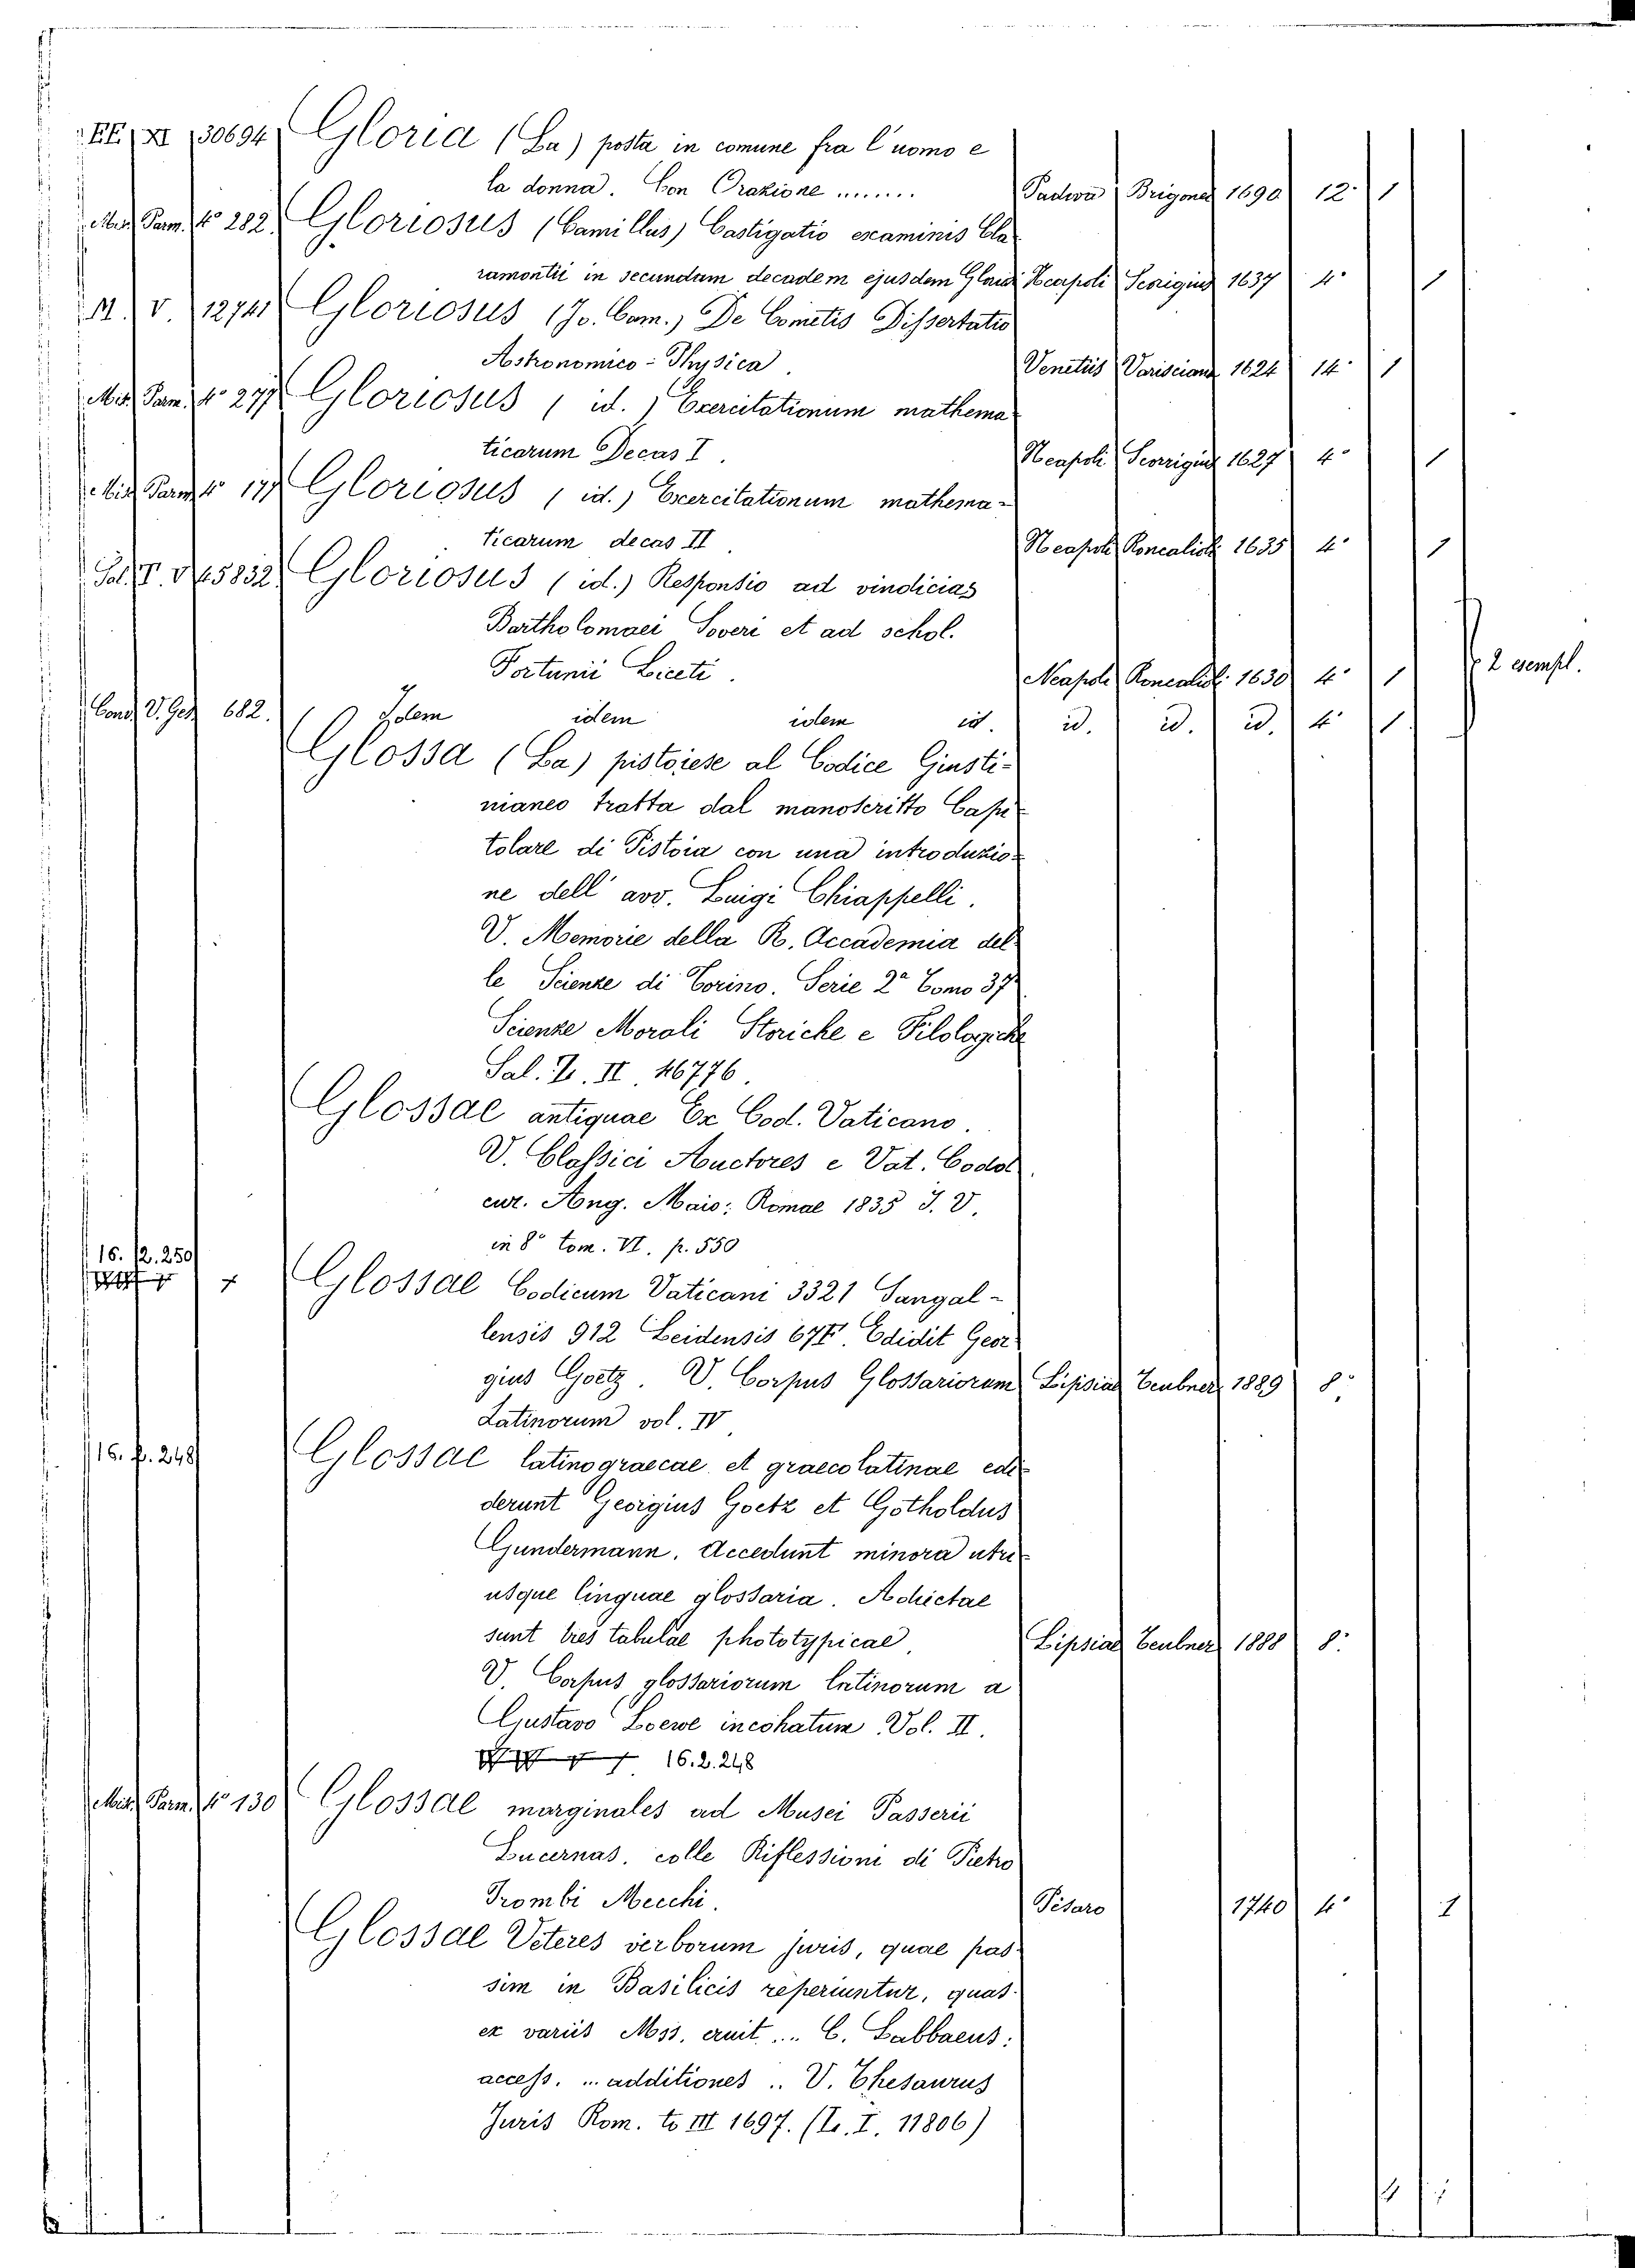 EE. XI 30694 Gloria (La) posta in comune fra l'uomo e
la donna. Con Orazione ....... Padova Brigonci 1690 12.° 1
Misc. Parm. 4.° 282. Gloriosus (Camillus) Castigatio examinis Cla
ramontii in secundam decadem ejusdem Neapoli 1637 4.° 1
M. V. 12741 Gloriosus (Jo. Cam.) De Cometis Dissertatio
Astronomico-Physica. Venetiis Varisciana 1624 14.° 1
Misc. Parm. 4.° 277 Gloriosus (id.) Exercitationum mathema
ticarum Decas I. Neapoli Scorrigius 1627 4.° 1
Misc. Parm. 4.° 177 Gloriosus (id.) Exercitationum mathema-
ticarum decas II. Neapoli Roncalioli 1635 4.° 1
Sal. V. 45832. Gloriosus (id.) Responsio ad vindicias
Bartholomaei Soveri et ad schol.
Fortunii Liceti. Neapoli Roncalioli 1630 4.° 1 2 esempl.
Cons. V. Ges. 682. Idem idem idem id. id. id. id. 4.° 1.
Glossa (La) pistoiese al Codice Giusti-
nianeo tratta dal manoscritto Capi-
tolare di Pistoia con una introduzio-
ne dell'avv. Luigi Chiappelli.
V. Memorie della R. Accademia del-
le Scienze di Torino. Serie 2.ª Tomo 37
Scienze Morali Storiche e Filologiche
Sal. Z. II. 46776.
Glossae antiquae Ex Cod. Vaticano.
V. Classici Auctores e Vat. Codd.
cur. Ang. Maio: Romae 1835 T. V.
in 8.° tom. VI. p. 550
16. 2. 250
Glossae Codicum Vaticani 3321 Sangal-
lensis 912 Leidensis 67F. Edidit Geor
gius Goetz. V. Corpus Glossariorum Lipsiae Teubner 1889 8.°
Latinorum vol. IV
16. f. 248 Glossae latinograecae et graecolatinae edi-
derunt Georgius Goetz et Gotholdus
Gundermann. Accedunt minora utri-
usque linguae glossaria. Adiectae
sunt tres tabulae phototypicae. Lipsiae Teubner 1888 8.°
V. Corpus glossariorum latinorum a
Gustavo Loewe incohatum Vol. II.
16. 2. 248
Misc. Parm. 4.° 130 Glossae marginales ad Musei Passerii
Lucernas, colle Riflessioni di Pietro
Trombi Mecchi. Pesaro 1740 4.° 1
Glossae Veteres verborum juris, quae pas-
sim in Basilicis reperiuntur, quas
ex variis Mss. eruit ... C. Labbaeus:
access. ... additiones .. V. Thesaurus
Juris Rom. to III 1697. (Z. I. 11806)